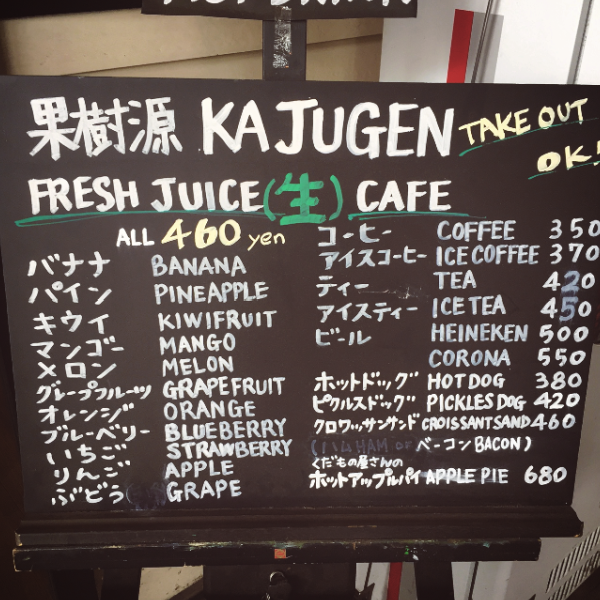 果樹源 KAJUGEN TAKE OUT OK!
FRESH JUICE (生) CAFE
ALL 460 yen
バナナ BANANA
パイン PINEAPPLE
キウイ KIWIFRUIT
マンゴー MANGO
メロン MELON
グレープフルーツ GRAPEFRUIT
オレンジ ORANGE
ブルーベリー BLUEBERRY
いちご STRAWBERRY
りんご APPLE
ぶどう GRAPE
コーヒー COFFEE 350
アイスコーヒー ICE COFFEE 370
ティー TEA 420
アイスティー ICE TEA 450
ビール HEINEKEN 500
CORONA 550
ホットドッグ HOT DOG 380
ピクルスドッグ PICKLES DOG 420
クロワッサンサンド CROISSANT SAND 460
(ハム HAM or ベーコン BACON)
くだもの屋さんの
ホットアップルパイ APPLE PIE 680